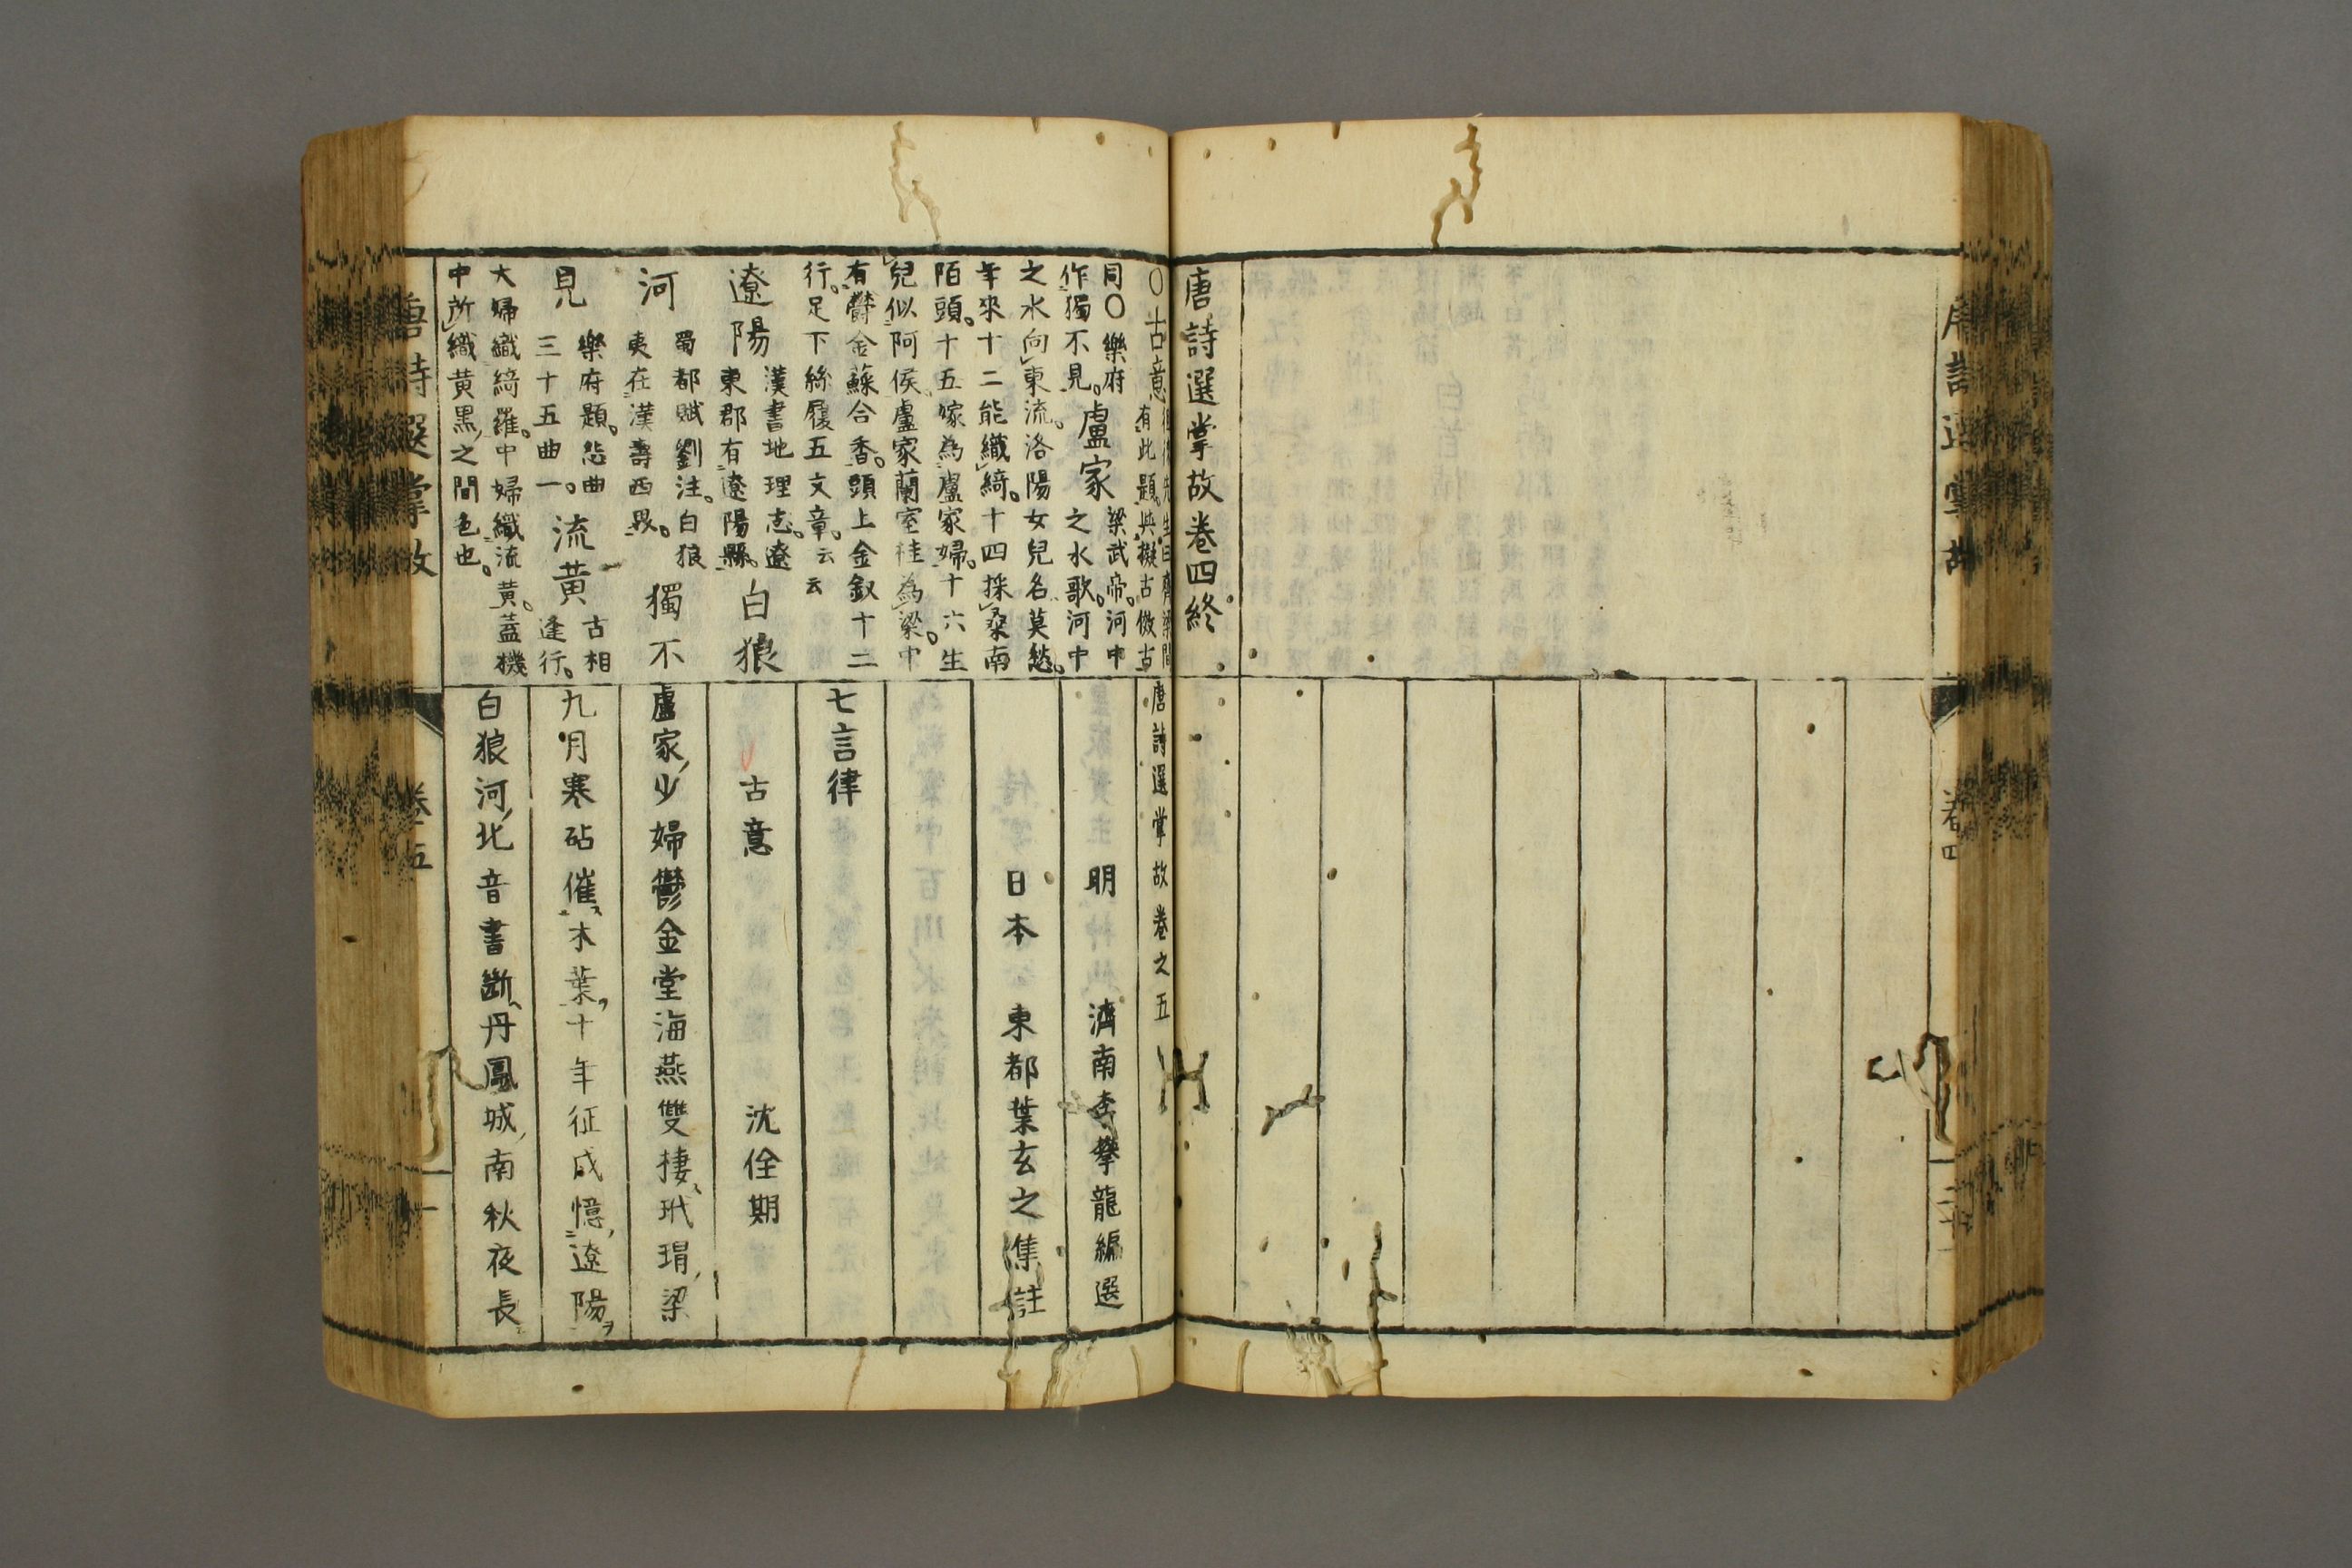 唐詩選掌故
卷四
唐詩選掌故卷四終
○古意
有此題與擬古倣古
同○樂府
作獨不見
盧家
梁武帝河中
之水歌河中
之水向東流洛陽女兒名莫愁
年來十二能織綺十四採桑南
陌頭十五嫁為盧家婦十六生
兒似阿侯盧家蘭室桂為梁中
有欝金蘇合香頭上金釵十二
行足下絲履五文章云云
遼陽
漢書地理志遼
東郡有遼陽縣
白狼
河
蜀都賦劉注白狼
夷在漢壽西界
獨不
見
樂府題怨曲
三十五曲一
流黃
古相
逢行
大婦織綺羅中婦織流黃蓋機
中所織黃黑之間色也
唐詩選掌故卷之五
明 濟南李攀龍編選
日本 東都葉玄之集註
七言律
古意 沈佺期
盧家少婦鬱金堂海燕雙棲玳瑁梁
九月寒砧催木葉十年征戍憶遼陽
白狼河北音書斷丹鳳城南秋夜長
唐詩選掌故
卷五
一